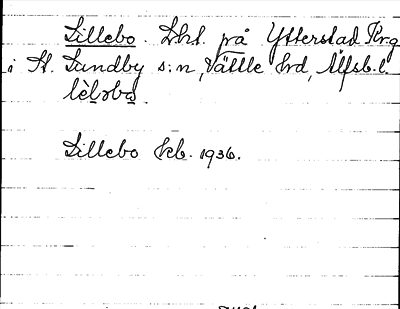 Lillebo. Lht. på Ytterstad Prg
i St. Lundby s:n, Vättle hrd, Älfsb. l.
lèlobo.
Lillebo Ecb. 1936.